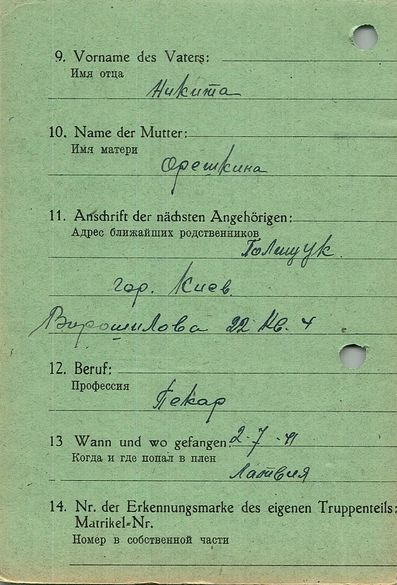 9. Vorname des Vaters:
Имя отца
Никита
10. Name der Mutter:
Имя матери
Орешкина
11. Anschrift der nächsten Angehörigen:
Адрес ближайших родственников
Полищук.
гор. Киев.
Ворошилова 22 кв. 4
12. Beruf:
Профессия
Пекар
13 Wann und wo gefangen: 2-7-41
Когда и где попал в плен
Латвия
14. Nr. der Erkennungsmarke des eigenen Truppenteils:
Matrikel-Nr.
Номер в собственной части